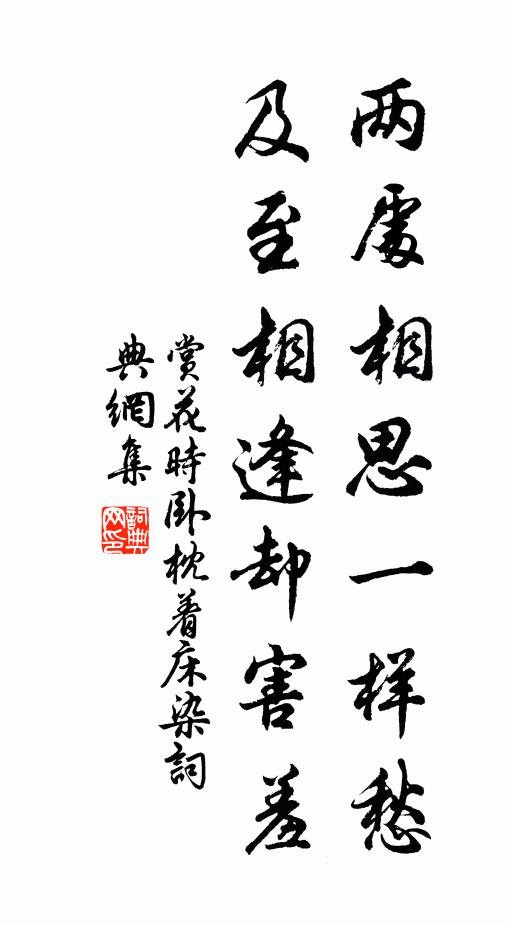 两處相思一样愁
及至相逢却害羞
赏花時卧枕着床染詞
典網集
詞典网印